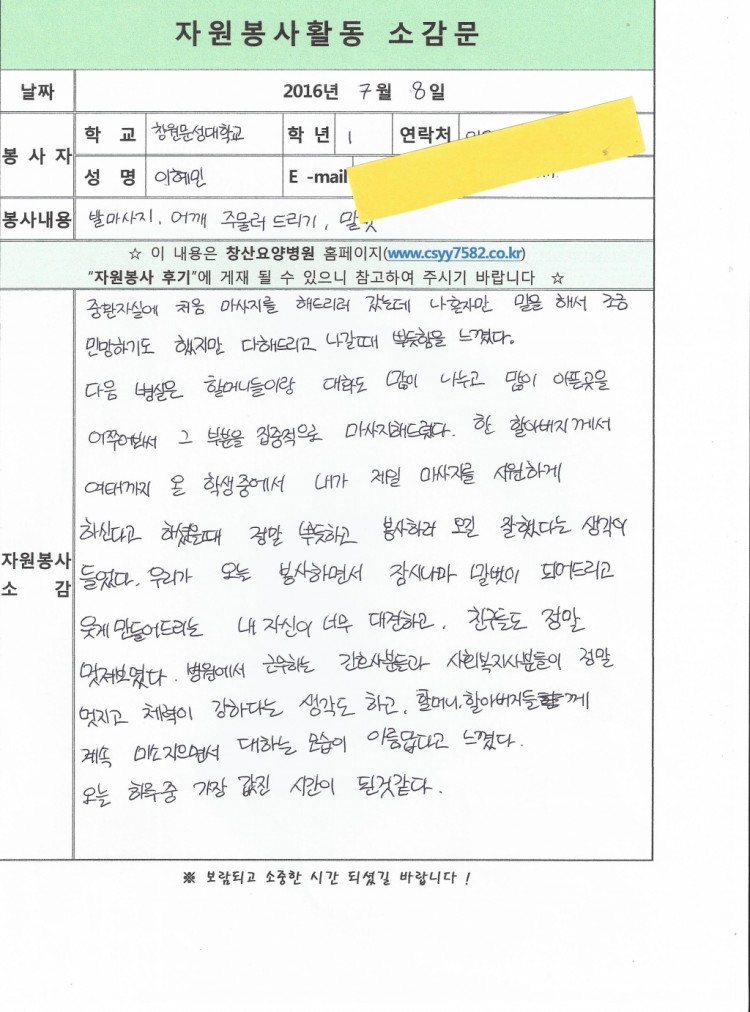 자원봉사활동 소감문
날짜 2016년 7월 8일
봉사자 학교 창원문성대학교 학년 1 연락처
성명 이혜민 E-mail
봉사내용 발마사지, 어깨 주물러 드리기, 말벗
☆ 이 내용은 창산요양병원 홈페이지(www.csyy7582.co.kr)
"자원봉사 후기"에 게재 될 수 있으니 참고하여 주시기 바랍니다 ☆
자원봉사 소감
중환자실에 처음 마사지를 해드리러 갔는데 나혼자만 말을 해서 조금
민망하기도 했지만 다해드리고 나갈때 뿌듯함을 느꼈다.
다음 병실은 할머니들이랑 대화도 많이 나누고 많이 아픈곳을
여쭈어봐서 그 부분을 집중적으로 마사지해드렸다. 한 할아버지께서
여태까지 온 학생중에서 내가 제일 마사지를 시원하게
하신다고 하셨을때 정말 뿌듯하고 봉사하러 오길 잘했다는 생각이
들었다. 우리가 오늘 봉사하면서 잠시나마 말벗이 되어드리고
웃게 만들어드리는 내 자신이 너무 대견하고, 친구들도 정말
멋져보였다. 병원에서 근무하는 간호사분들과 사회복지사분들이 정말
멋지고 체력이 강하다는 생각도 하고, 할머니, 할아버지들께
계속 미소지으면서 대하는 모습이 아름답다고 느꼈다.
오늘 하루중 가장 값진 시간이 된것같다.
※ 보람되고 소중한 시간 되셨길 바랍니다 !